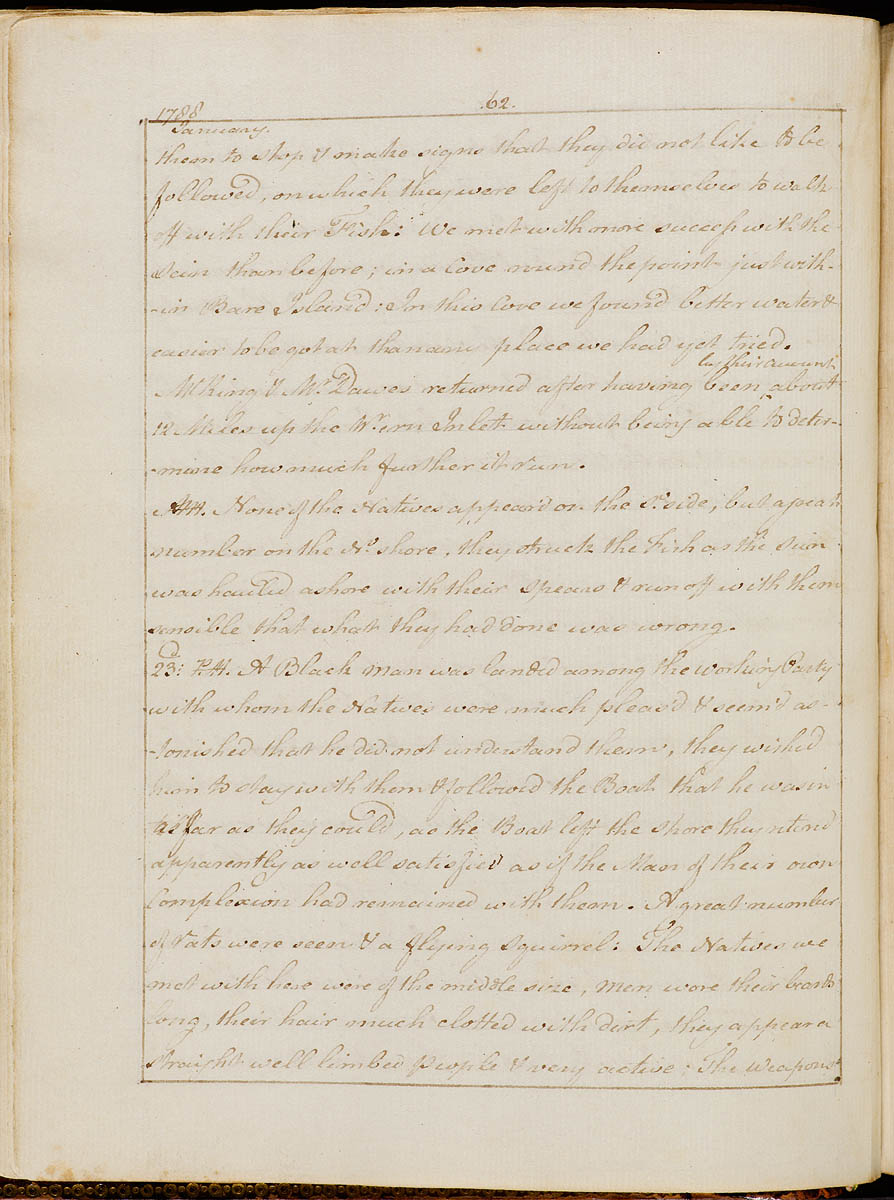 1788
.62.
January.
them to stop & make signs that they did not like to be
followed, on which they were left to themselves to walk
off with their Fish: We met with more success with the
Sein than before; in a Cove round the point just with-
-in Bare Island: In this Cove we found better water &
easier to be got at than any place we had yet tried.
by their account
Mr. King & Mr. Dawes returned after having been about
12 Miles up the Wt.ern Inlet without being able to deter-
-mine how much further it run.
AM. None of the Natives appear'd on the So. side, but a great
number on the No. shore, they struck the Fish as the Sein
was hauled ashore with their spears & run off with them
sensible that what they had done was wrong.
23d: P.M. A Black man was landed among the working Party
with whom the Natives were much pleas'd & seem'd as-
-tonished that he did not understand them, they wished
him to stay with them & followed the Boat that he was in
as far as they could, as the Boat left the shore they
apparently as well satisfied as if the Man of their own
Complexion had remained with them. A great number
of rats were seen & a flying squirrel: The Natives we
met with here were of the middle size, men wore their beards
long, their hair much clotted with dirt, they appear a
straight well limbed people & very active: The weapons